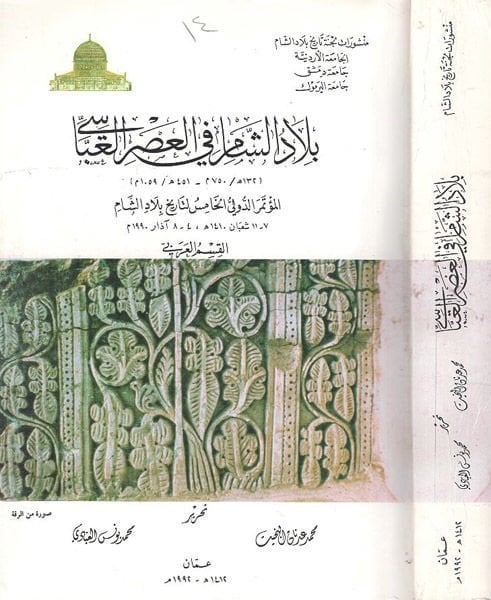 ١٤
منشورات لجنة تاريخ بلاد الشام
الجامعة الأردنية
جامعة دمشق
جامعة اليرموك
بلاد الشام في العصر العباسي
(١٣٢هـ/٧٥٠م - ٤٥١هـ/١٠٥٩م)
المؤتمر الدولي الخامس لتاريخ بلاد الشام
٧-١١ شعبان ١٤١٠هـ، ٤-٨ آذار ١٩٩٠م
القسم العربي
صورة من الرقة
تحرير
محمد عدنان البخيت
محمد يونس العبادي
عمّان
١٤١٢هـ - ١٩٩٢م
منشورات لجنة تاريخ بلاد الشام
بلاد الشام في العصر العباسي
تحرير
محمد عدنان البخيت
محمد يونس العبادي
عمّان
١٤١٢هـ - ١٩٩٢م